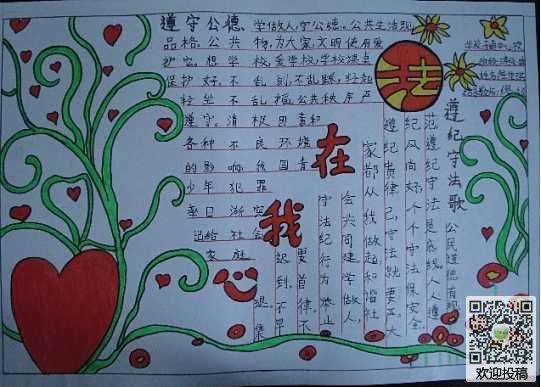 遵守公德
学做人，守公德。公共生活现
品格。公共 物，为大家，文明使有爱
护它。想学校，爱学校，学校校点
保护好。不乱刻，不乱踩，轻起
轻坐不乱摇。公共秩序严
遵守。消极因素和
各种不良环境
的影响，我国青
少年犯罪
率日渐突
迟给社会
家庭
法
在
我
心
遵纪守法歌
公民道德有规
范，遵纪守法是底线。人人遵
纪风向好，个个守法保安全。
遵纪贵律己，守法就要正大
家都从我做起，和谐社
会共同建。学做人，
守法纪，行为举止
要首律。不
迟到，不早
退。集
欢迎投稿